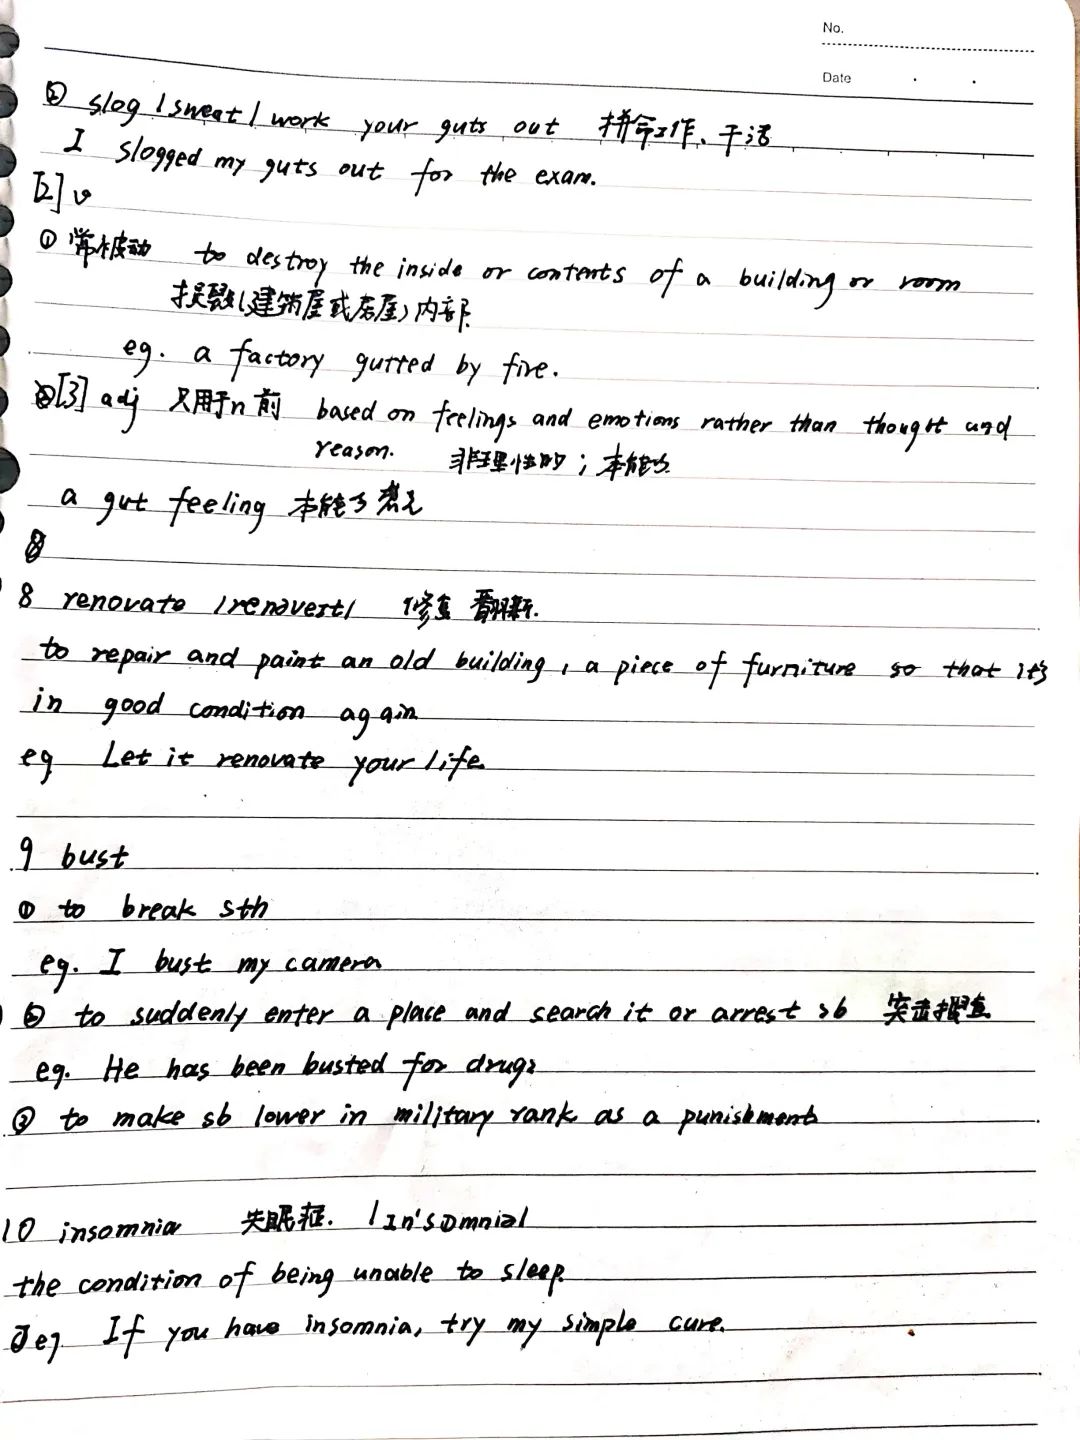 No.
Date
② slog / sweat / work your guts out 拼命工作、干活
I slogged my guts out for the exam.
[2] v
① 常被动 to destroy the inside or contents of a building or room
损毁(建筑屋或房屋)内部
eg. a factory gutted by fire.
[3] adj 只用于n前 based on feelings and emotions rather than thought and
reason. 非理性的；本能的
a gut feeling 本能
8 renovate /renəveɪt/ 修复 翻新.
to repair and paint an old building, a piece of furniture so that it's
in good condition again
eg Let it renovate your life.
9 bust
① to break sth
eg. I bust my camera
② to suddenly enter a place and search it or arrest sb 突击搜查
eg. He has been busted for drugs
③ to make sb lower in military rank as a punishment
10 insomnia 失眠症. /ɪn'sɒmniə/
the condition of being unable to sleep.
eg If you have insomnia, try my simple cure.